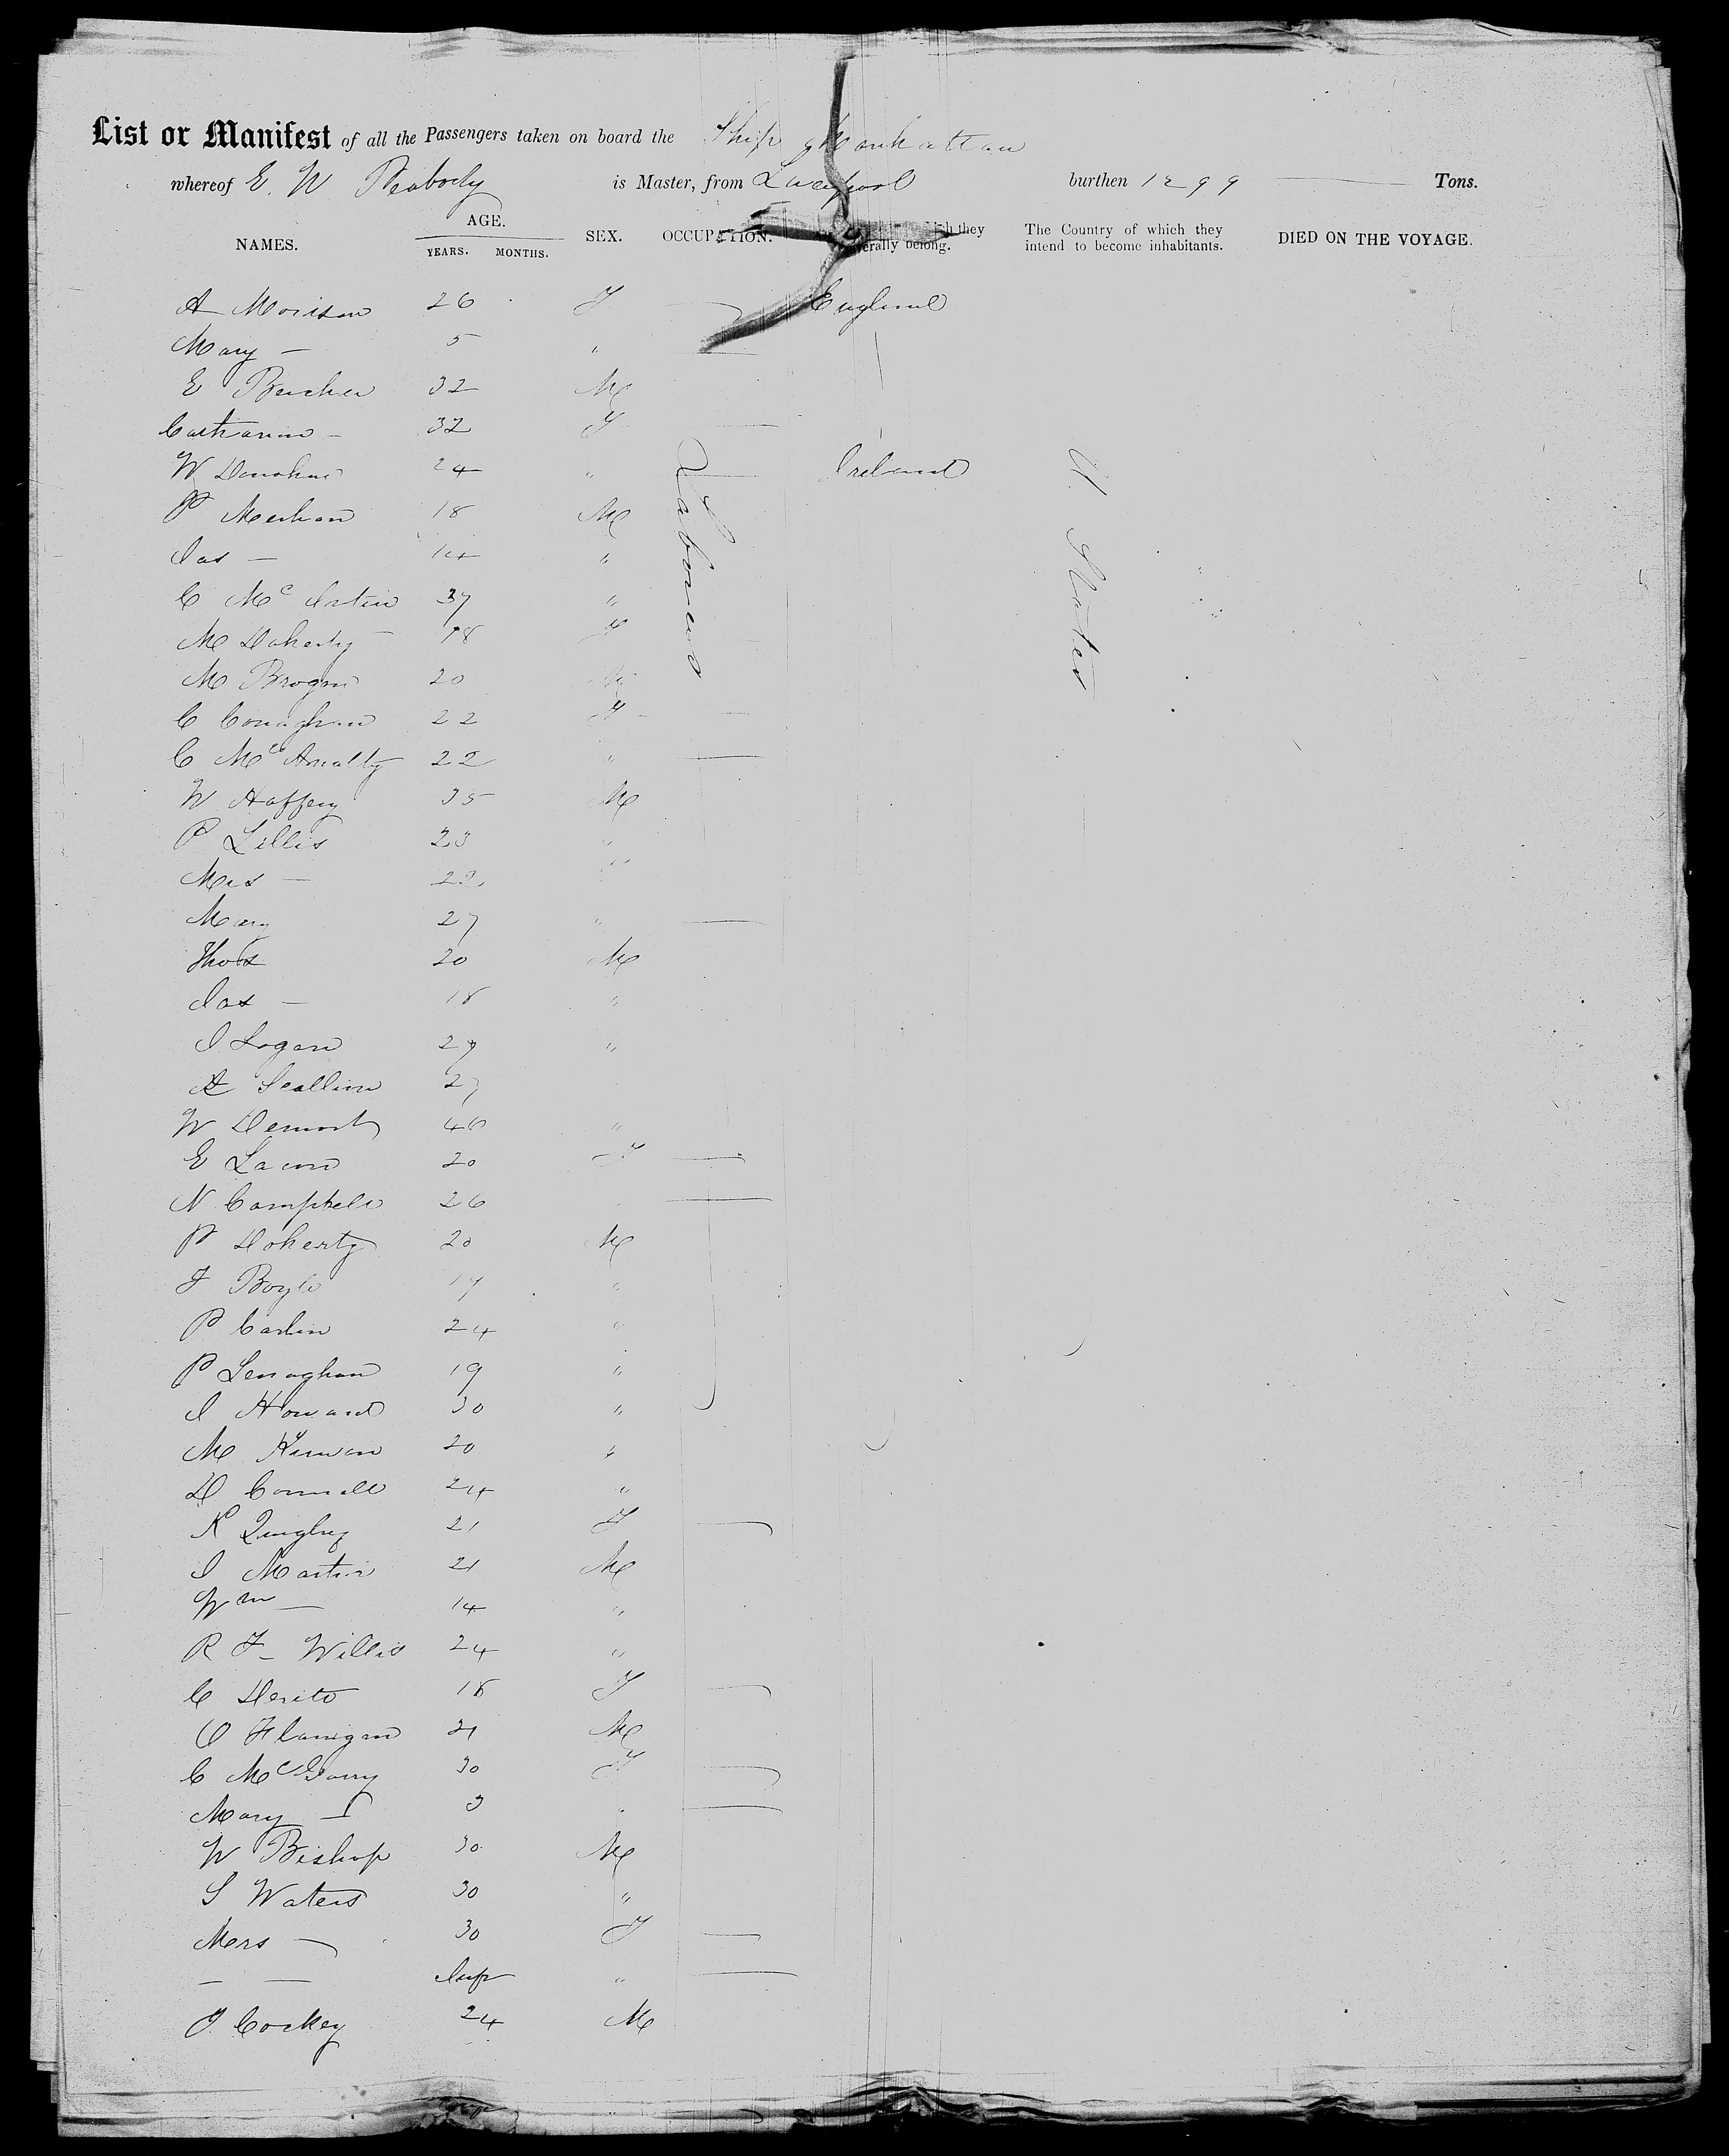 List or Manifest of all the Passengers taken on board the Ship Manhattan
whereof E. W Peabody is Master, from Liverpool burthen 1299 Tons.
NAMES. AGE. YEARS. MONTHS. SEX. OCCUPATION. they belong. The Country of which they intend to become inhabitants. DIED ON THE VOYAGE.
A Morison 26 F — England
Mary — 5 " —
E 32 M
Catharine — 32 F —
W Donohue 24 " — Ireland
P Meehan 18 M Laborers U. States
Jas — 14 "
C Mc 37 "
M Doherty 18 F
M Brogan 20 M
C Conaghan 22 F —
C McAnally 22 " —
W Haffery 35 M
P Lillis 23 "
Mrs — 22 "
Mary 27 " —
Thos 20 M
Jas — 18 "
J Logan 27 "
A Scallion 27
W 40 "
E 20 F —
N Campbell 26 —
P Doherty 20 M
F Boyle 19 "
P Carlin 24 "
P Lenaghan 19 "
J Howard 30 "
M Kirwan 20 "
D Connell 24 "
K Quigley 21 F —
J Martin 21 M
Wm — 14 "
R F Willis 24 "
C 18 F —
O Flanigan 21 M
C Mc 30 F —
Mary — 3 " —
W Bishop 30 M
S Waters 30 "
Mrs — 30 F —
— — Inf " —
J Corkey 24 M